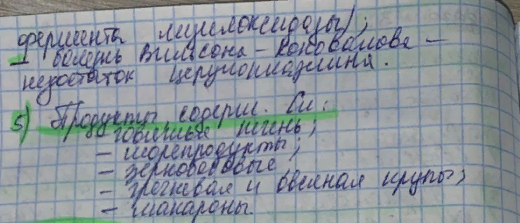 фермента лизилоксидазы);
- болезнь Вильсона - Коновалова -
недостаток церулоплазмина.
5) Продукты содерж. Cu:
- говяжья печень;
- морепродукты;
- зернобобовые
- гречневая и овсяная крупы;
- макароны.